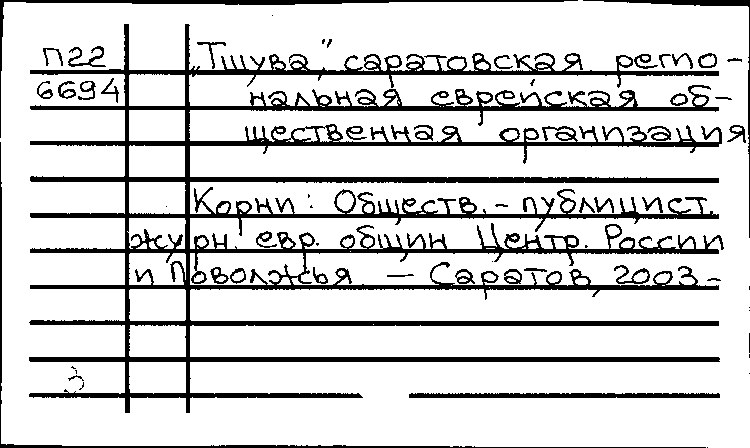 П22 „Тшува", саратовская регио-
6694 нальная еврейская об-
щественная организация
Корни: Обществ.-публицист.
журн. евр. общин Центр. России
и Поволжья — Саратов, 2003-
3